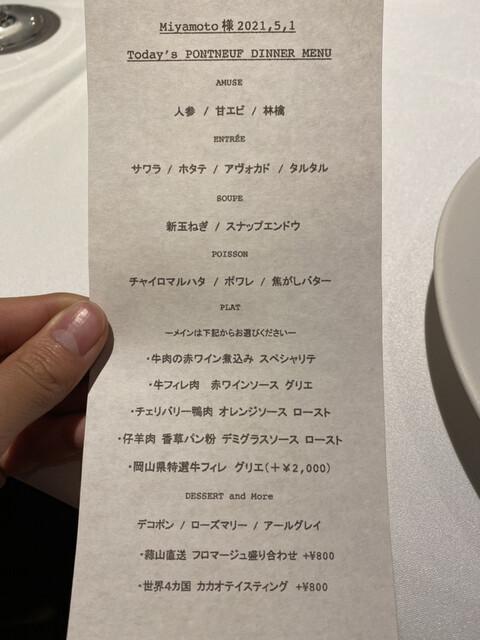 Miyamoto 様 2021,5,1
Today's PONTNEUF DINNER MENU
AMUSE
人参 / 甘エビ / 林檎
ENTRÉE
サワラ / ホタテ / アヴォカド / タルタル
SOUPE
新玉ねぎ / スナップエンドウ
POISSON
チャイロマルハタ / ポワレ / 焦がしバター
PLAT
ーメインは下記からお選びくださいー
・牛肉の赤ワイン煮込み スペシャリテ
・牛フィレ肉 赤ワインソース グリエ
・チェリバリー鴨肉 オレンジソース ロースト
・仔羊肉 香草パン粉 デミグラスソース ロースト
・岡山県特選牛フィレ グリエ(＋￥2,000)
DESSERT and More
デコポン / ローズマリー / アールグレイ
・蒜山直送 フロマージュ盛り合わせ +¥800
・世界4カ国 カカオテイスティング +¥800